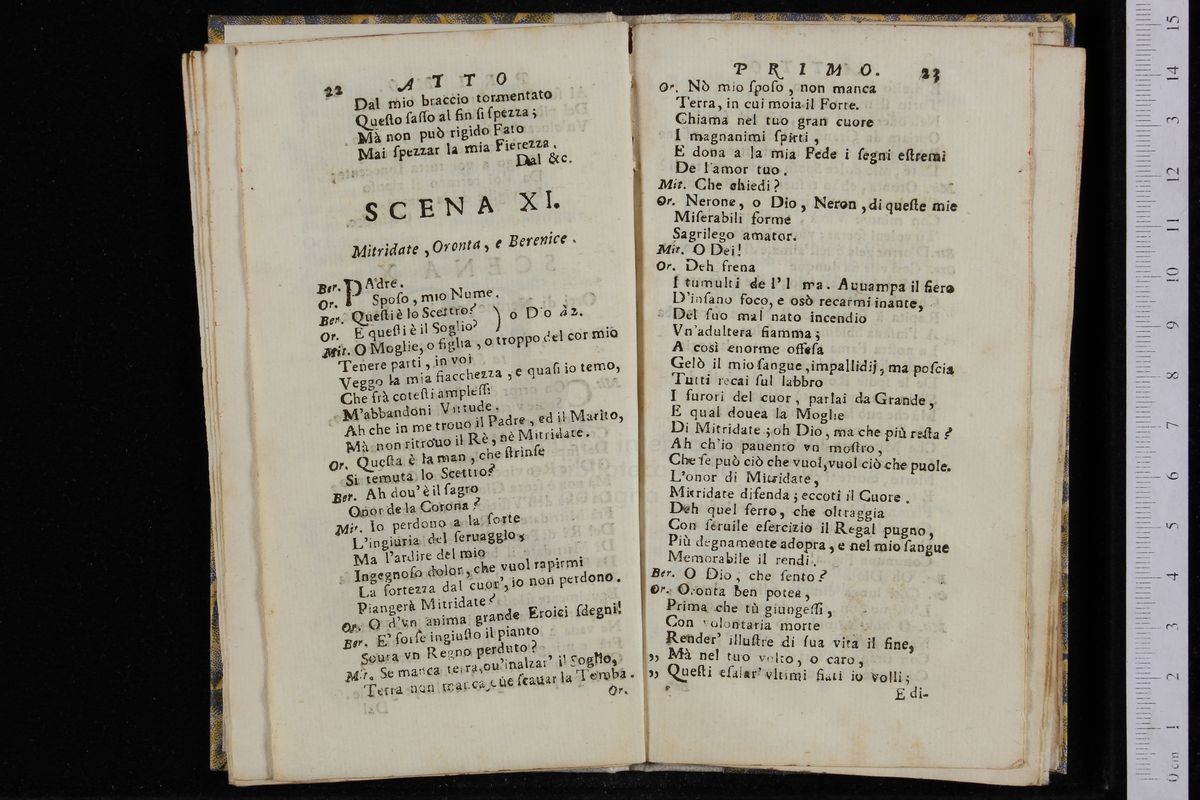 22 ATTO
Dal mio braccio tormentato
Questo sasso al fin si spezza;
Mà non può rigido Fato
Mai spezzar la mia Fierezza.
Dal &c.
SCENA XI.
Mitridate, Oronta, e Berenice.
Ber. PAdre.
Or. Sposo, mio Nume.
Ber. Questi è lo Scettro?
Or. E questi è il Soglio? ) o Dio à 2.
Mit. O Moglie, o figlia, o troppo del cor mio
Tenere parti, in voi
Veggo la mia fiacchezza, e quasi io temo,
Che frà cotesti amplessi
M'abbandoni Virtude.
Ah che in me trouo il Padre, ed il Marito,
Mà non ritrouo il Rè, nè Mitridate.
Or. Questa è la man, che strinse
Si temuta lo Scettro?
Ber. Ah dou'è il sagro
Onor de la Corona?
Mit. Io perdono a la sorte
L'ingiuria del seruaggio,
Ma l'ardire del mio
Ingegnoso dolor, che vuol rapirmi
La fortezza dal cuor', io non perdono.
Piangerà Mitridate?
Or. O d'vn anima grande Eroici sdegni!
Ber. E' forse ingiusto il pianto
Soura vn Regno perduto?
Mit. Se manca terra, ou'inalzar' il Soglio,
Terra non manca, oue scauar la Tomba.
Or.
PRIMO. 23
Or. Nò mio sposo, non manca
Terra, in cui moia il Forte.
Chiama nel tuo gran cuore
I magnanimi spirti,
E dona a la mia Fede i segni estremi
De l'amor tuo.
Mit. Che chiedi?
Or. Nerone, o Dio, Neron, di queste mie
Miserabili forme
Sagrilego amator.
Mit. O Dei!
Or. Deh frena
I tumulti de l'I ma. Auuampa il fiero
D'insano foco, e osò recarmi inante,
Del suo mal nato incendio
Vn'adultera fiamma;
A così enorme offesa
Gelò il mio sangue, impallidij, ma poscia
Tutti recai sul labbro
I furori del cuor, parlai da Grande,
E qual douea la Moglie
Di Mitridate; oh Dio, ma che più resta?
Ah ch'io pauento vn mostro,
Che se può ciò che vuol, vuol ciò che puole.
L'onor di Mitridate,
Mitridate difenda; eccoti il Cuore.
Deh quel ferro, che oltraggia
Con seruile esercizio il Regal pugno,
Più degnamente adopra, e nel mio sangue
Memorabile il rendi.
Ber. O Dio, che sento?
Or. Oronta ben potea,
Prima che tù giungessi,
Con volontaria morte
Render' illustre di sua vita il fine,
„ Mà nel tuo volto, o caro,
„ Questi esalar' vltimi fiati io volli;
E di-